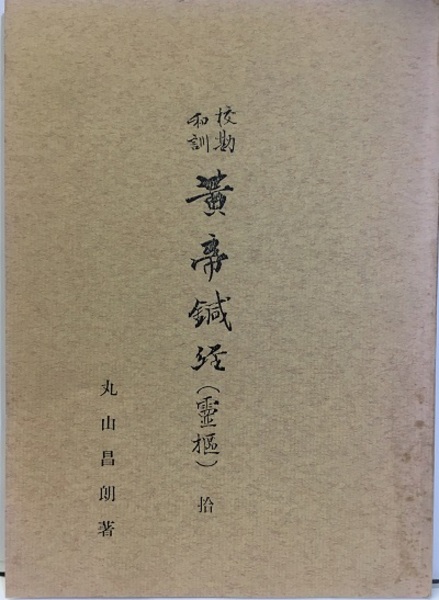 校勘
和訓
黄帝鍼経（靈樞）拾
丸山昌朗著